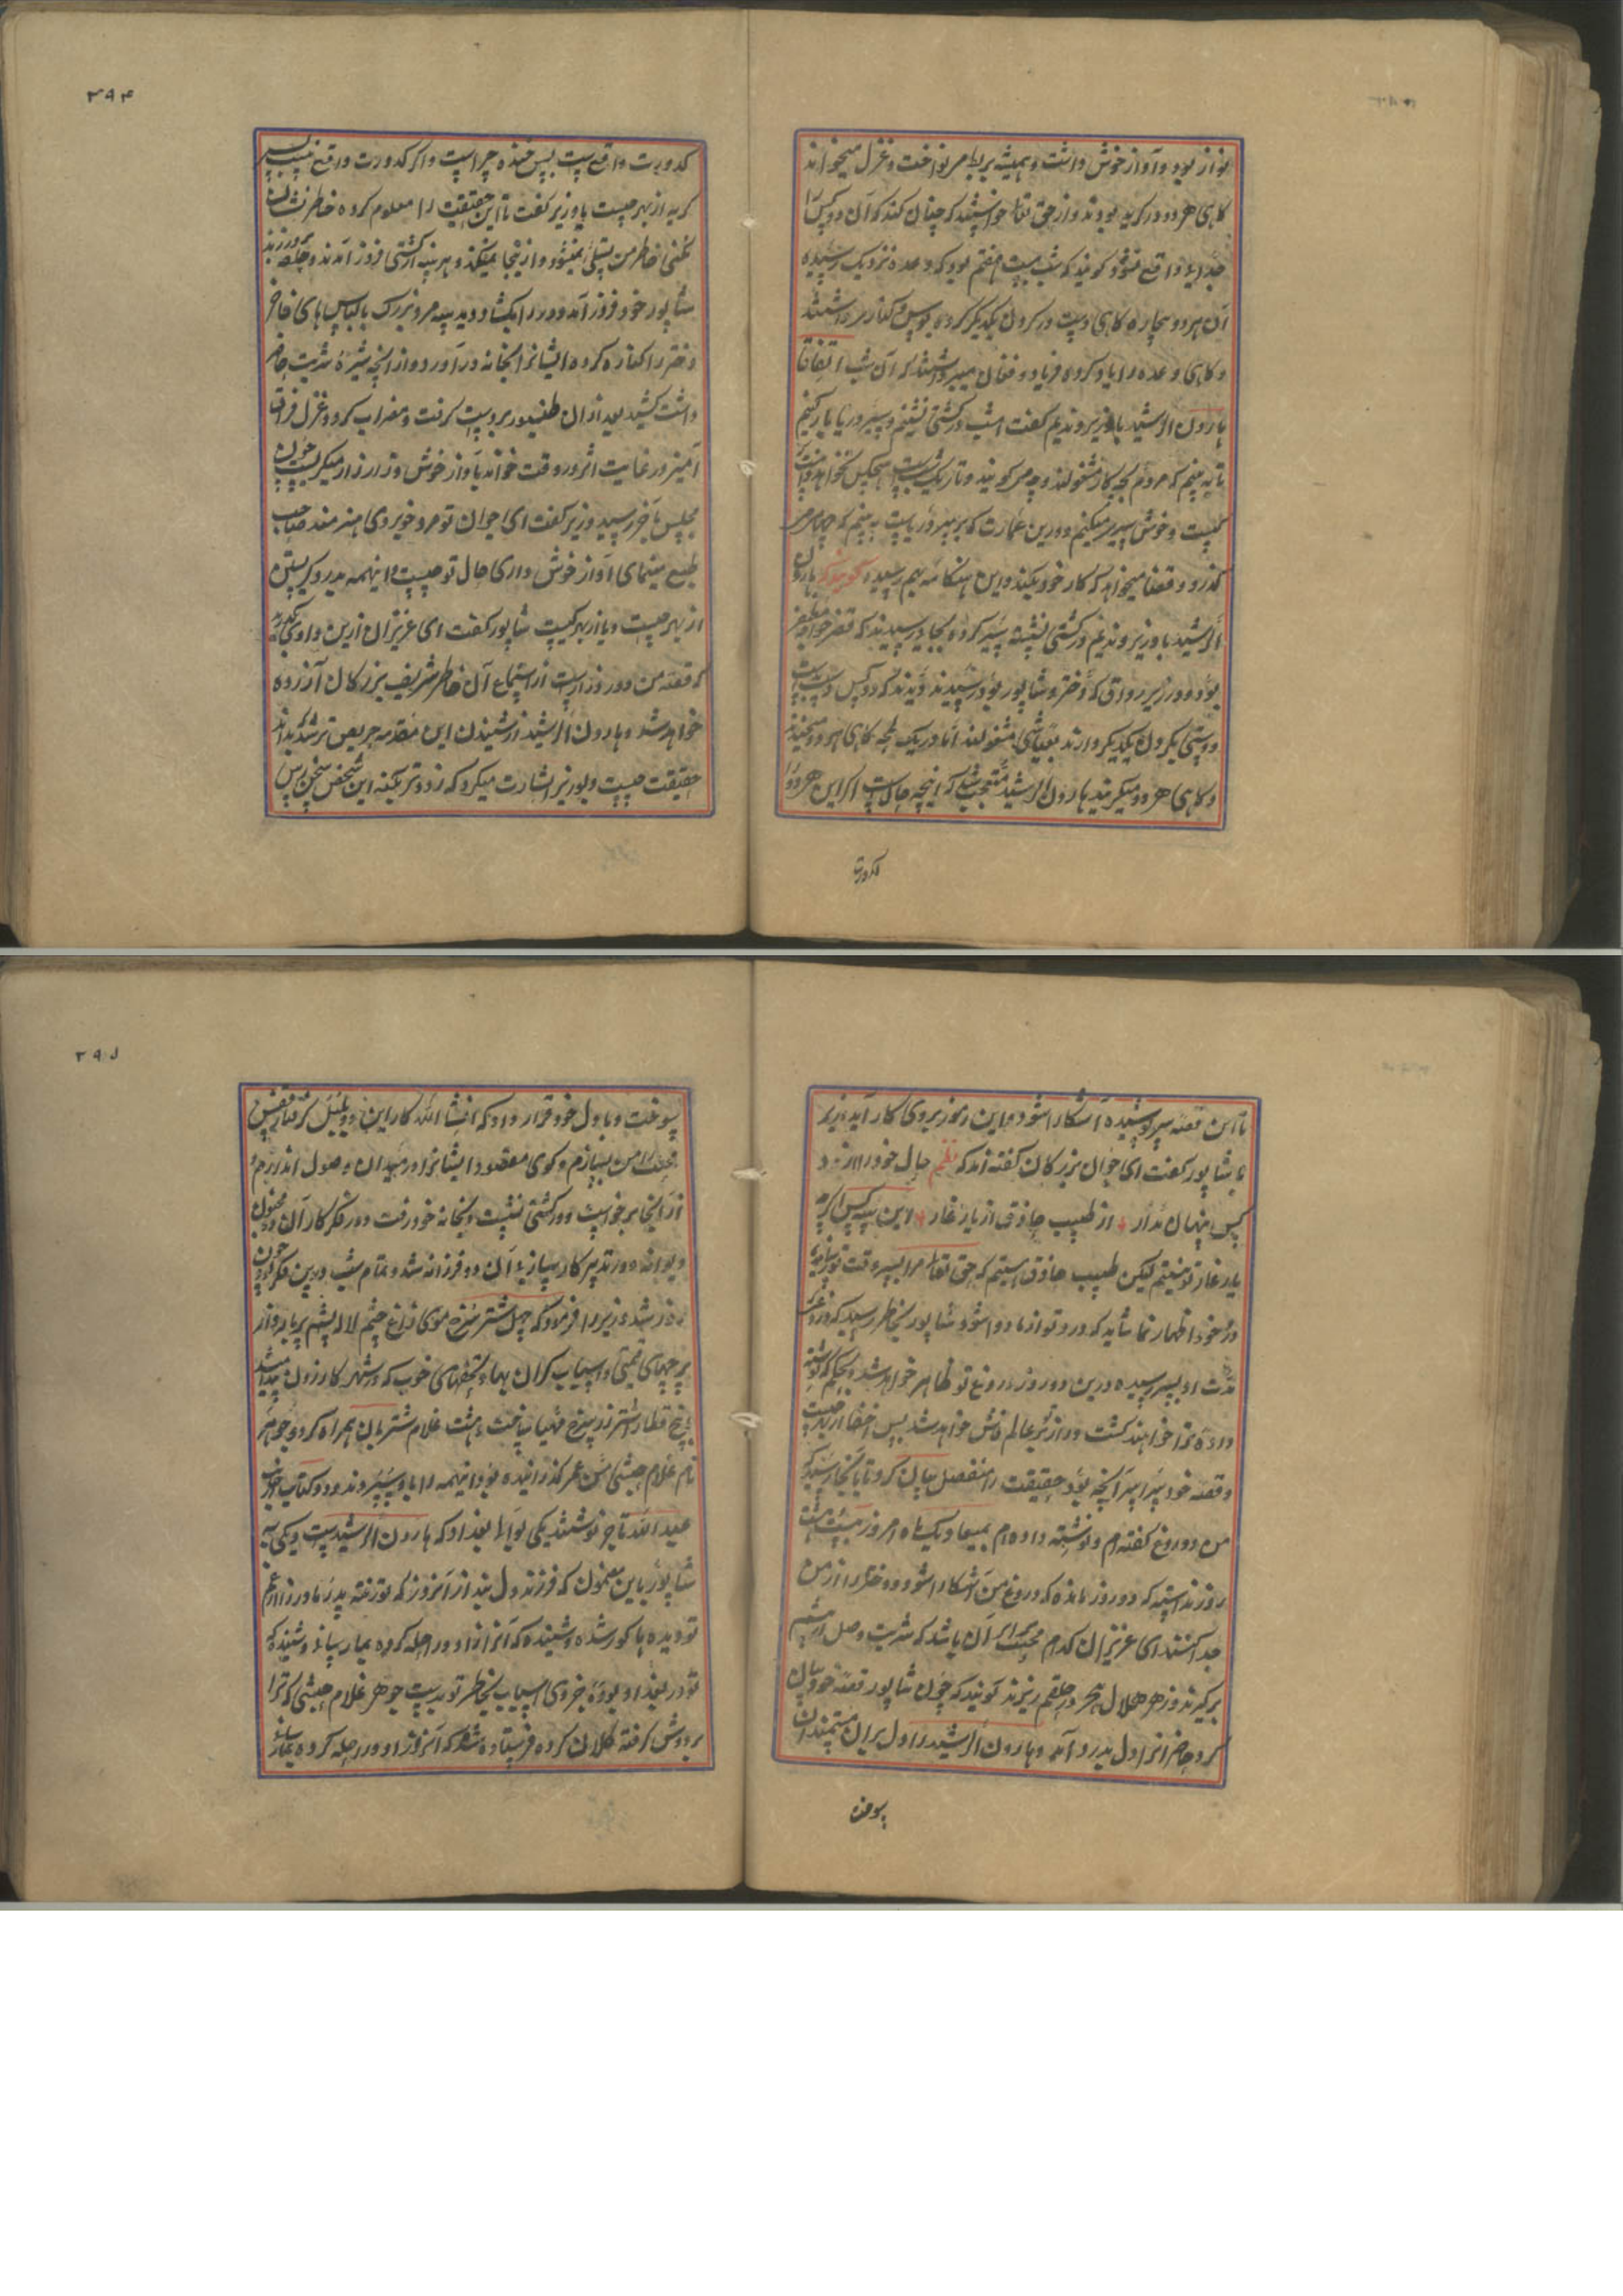 نواز بود و آواز خوش داشت و همیشه بربط می نواخت و غزل میخواند
کاهی هر دو در کریه بودند و از حق تعالی میخواستند که چنان کند که آن دو کس را
جدایی واقع نشود کویند که شب بیست هفتم بود که وعده نزدیک رسیده
آن هر دو بیچاره کاهی دست در کردن یکدیکر کرده بوس و کنار میداشتند
و کاهی وعده را یاد کرده فریاد و فغان میبرداشتند که آن شب اتفاقا
هارون الرشید با وزیر و ندیم کفت امشب در کشتی نشینم و سیر دریا بار کنیم
تا به بینم که مردم بچه کار مشغولند و چه میکویند و تاریک شب است هیچکس نخواهد دانست
کیست و خوش سیر میکنم و درین عمارت که بر سر دریاست به بینم که چها میـ
کذرد و قضا میخواهد که کار خود بکند و این هنکامه بهم رسید کویند که هارون
الرشید با وزیر و ندیم در کشتی نشسته سیر کرده بجایی رسیدند که قصر خواجه مظفر
بود و در زیر رواق که دختر و شاپور بود رسیدند دیدند که دو کس دست
دوستی بکردن یکدیکر دارند بعیاشی مشغولند اما در یک لمحه کاهی هر دو میخندند
و کاهی هر دو میکریند هارون الرشید متعجب شد که اینچه حال است اکر این هر دو را
کدورت
۳۹۴
کدورت واقع ست پس خنده چراست و اکر کدورت واقع نیست پس
کریه از بهر چیست با وزیر کفت تا این حقیقت را معلوم کرده خاطر نشان
نکنی خاطر من تسلی نمیشود و از اینجا نمیکذرد هر سه از کشتی فرود آمدند و حلقه بر در زدند
شاپور خود فرود آمد و در را بکشاد دید سه مرد بزرک با لباس های فاخر
دختر را کناره کرده ایشانرا بخانه در آورد و از انچه شیره شربت حاضر
داشت کشید بعد از ان طنبور بدست کرفت و مضراب کرد و غزل فراق
آمیز در غایت اثر و رقت خواند باواز خوش و زار زار میکریست چون
مجلس باخر رسید وزیر کفت ای جوان تو مرد خوبروی هنرمند صاحب
طبع مینمای آواز خوش داری حال تو چیست و اینهمه بدرد کریستن
از بهر چیست و یا از بهر کیست شاپور کفت ای عزیزان ازین وادی بکذرید
که قصه من دور و درازست از استماع آن خاطر شریف بزرکان آزرده
خواهد شد و هارون الرشید از شنیدن این مقدمه حریص تر شد که بداند
حقیقت چیست و بوزیر اشارت میکرد که زودتر بکنه این شخص سخن برس
تا این قصه سر پوشیده آشکارا شود و این رموز بروی کار آید وزیر
با شاپور کفت ای جوان بزرکان کفته اند که نظم حال خود را از دو
کس پنهان مدار ٭ از طبیب حاذق از یار غار ٭ این سه کس اکرچه
یار غار تو نیستیم لیکن طبیب حاذق هستیم که حق تعالی ما را بسر وقت تو رسانید
درد خود اظهار نما شاید که درد تو از ما دوا شود شاپور بخاطر رسید که
مدت او بسر رسیده درین دو روز دروغ تو ظاهر خواهد شد و بحکم که نوشته
داده ترا خواهند کشت و راز تو بر عالم فاش خواهد شد پس اخفا از بهر چیست
و قصه خود سراسر انچه بود حقیقت را مفصل بیان کرد تا بانجا رسید که
من دروغ کفته ام و نوشته داده ام بمیعاد یک ماه امروز بیست هشت
روز ند استمه که دو روز مانده که دروغ من آشکارا شود و دختر را از من
جدا کنند ای عزیزان کدام محبت ازان باشد که شربت وصل از پیشم
برکیرند و زهر هلاهل هجر در حلقم ریزند کویند که چون شاپور قصه خود بیان
کرد حاضرانرا دل بدرد آمد و هارون الرشید را دل بران مستمندان
سوخت
۳۹۵
سوخت و با دل خود قرار داد که انشا الله کار این دو بلبل کرفتار قفس
محبت را من بسازم و کوی مقصود ایشانرا در میدان وصول اندازم و
از آنجا برخواست و در کشتی نشست و بخانه خود رفت و در فکر کار آن دو مجنون
دیوانه و در تدبیر کار سازیء آن دو فرزانه شد و تمام شب درین فکر بود چون
روز شد وزیر را فرمود که چهل شتر سرخ موی زاغ چشم لاله پشم پر بار از
پرچهای قیمتی و اسباب کران بها و تحفهای خوب که در شهر کازرون پیدا میشد
پنج قطار شتر زر سرخ مهیا ساخت و هشت غلام شتربان همراه کرد و جوهر
نام غلام حبشی مسن عمر کذرانیده بود اینهمه را باو سپردند و دو کتابت از جانب
عبد الله تاجر نوشتند یکی بوالیء بغداد که هارون الرشیدست و یکی به
شاپور باین مضمون که فرزند دلبند از آنروز که تو رفته پدر و مادر را از غم
تو دیده ها کور شده و شنیده که آنرا از او در راحله کرده بما رسانند و شنیده که
تو در بغداد بوده جزوی اسباب بخاطر تو بدست جوهر غلام حبشی که ترا
بر دوش کرفته کلان کرده فرستاده شد که آنروز او در راحله کرده بما رسانند